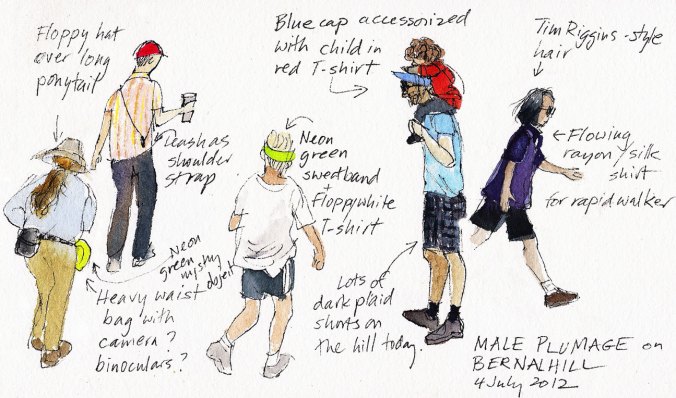 Floppy hat
over long
ponytail
Leash as
shoulder
strap
Neon
green
mystery
object
Heavy waist
bag with
camera?
binoculars?
Neon
green
sweatband
+
Floppy white
T-shirt
Blue cap accessorized
with child in
red T-shirt
Lots of
dark plaid
shorts on
the hill today.
Tim Riggins-style
hair
Flowing
rayon/silk
shirt
for rapid walker
MALE PLUMAGE on
BERNAL HILL
4 July 2012